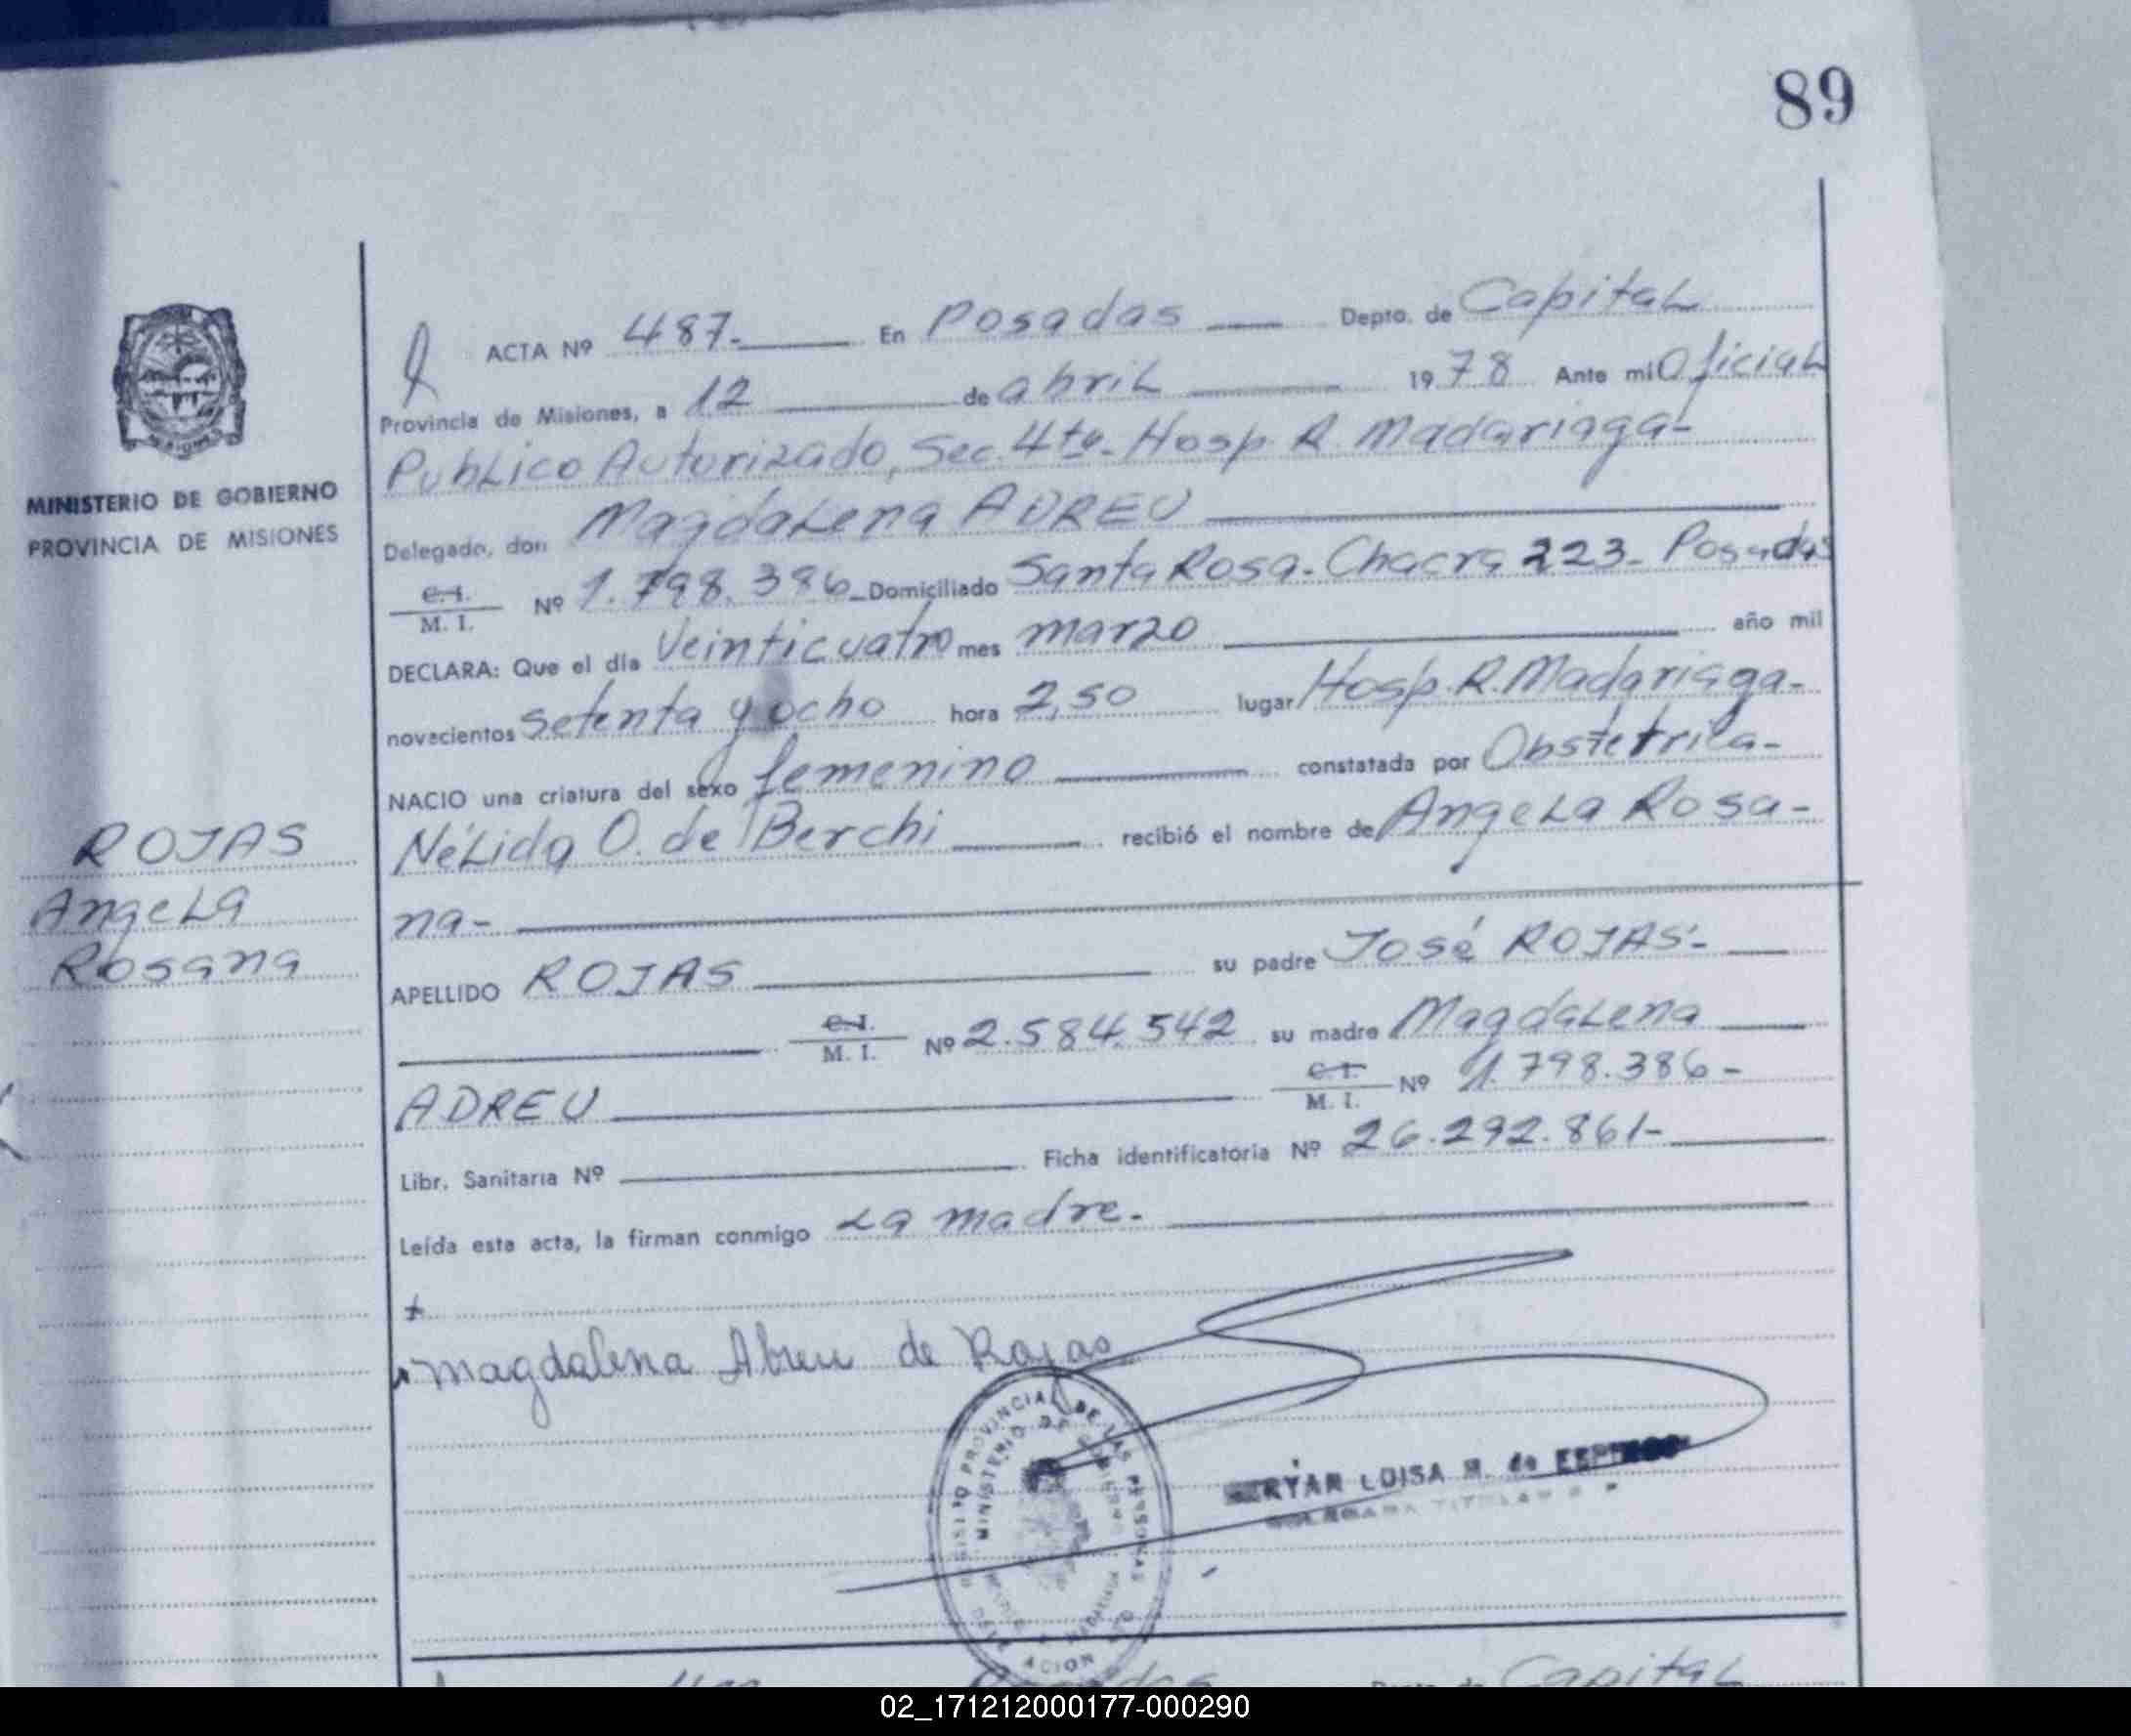 89
ACTA Nº 487.- En Posadas Depto. de Capital
Provincia de Misiones, a 12 de abril 1978 Ante mi Oficial
Publico Autorizado, Sec. 4ta. Hosp. R. Madariaga-
MINISTERIO DE GOBIERNO
PROVINCIA DE MISIONES
Delegado, don Magdalena ADREU
C.I. M. I. Nº 1.798.386- Domiciliado Santa Rosa- Chacra 223- Posadas
DECLARA: Que el día Veinticuatro mes marzo año mil
novecientos setenta y ocho hora 2,50 lugar Hosp. R. Madariaga-
NACIO una criatura del sexo femenino constatada por Obstetrica-
Nélida O. de Berchi recibió el nombre de Angela Rosa-
na-
ROJAS
Angela
Rosana
APELLIDO ROJAS su padre José ROJAS.-
C.I. M. I. Nº 2.584.542 su madre Magdalena
ADREU C.I. M. I. Nº 1.798.386-
Libr. Sanitaria Nº Ficha identificatoria Nº 26.292.861-
Leída esta acta, la firman conmigo La madre.-
Magdalena Abreu de Rojas
PROVINCIAL DE LAS PERSONAS
MINISTERIO DE GOBIERNO
LUISA M. de
Capital
02_171212000177-000290